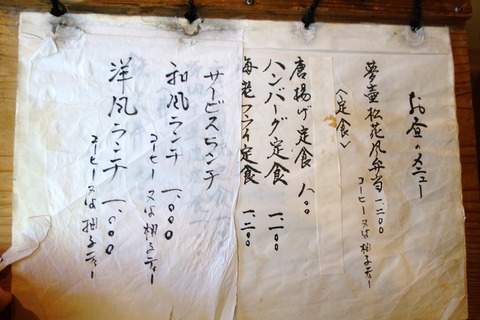 お昼のメニュー
夢壷松花風弁当 一、二〇〇
コーヒー又は柚子ティー
〈定食〉
唐揚げ定食 八〇〇
ハンバーグ定食 一、一〇〇
海老フライ定食 一、二〇〇
サービスランチ
和風ランチ 一、〇〇〇
コーヒー又は柚子ティー
洋風ランチ 一、〇〇〇
コーヒー又は柚子ティー